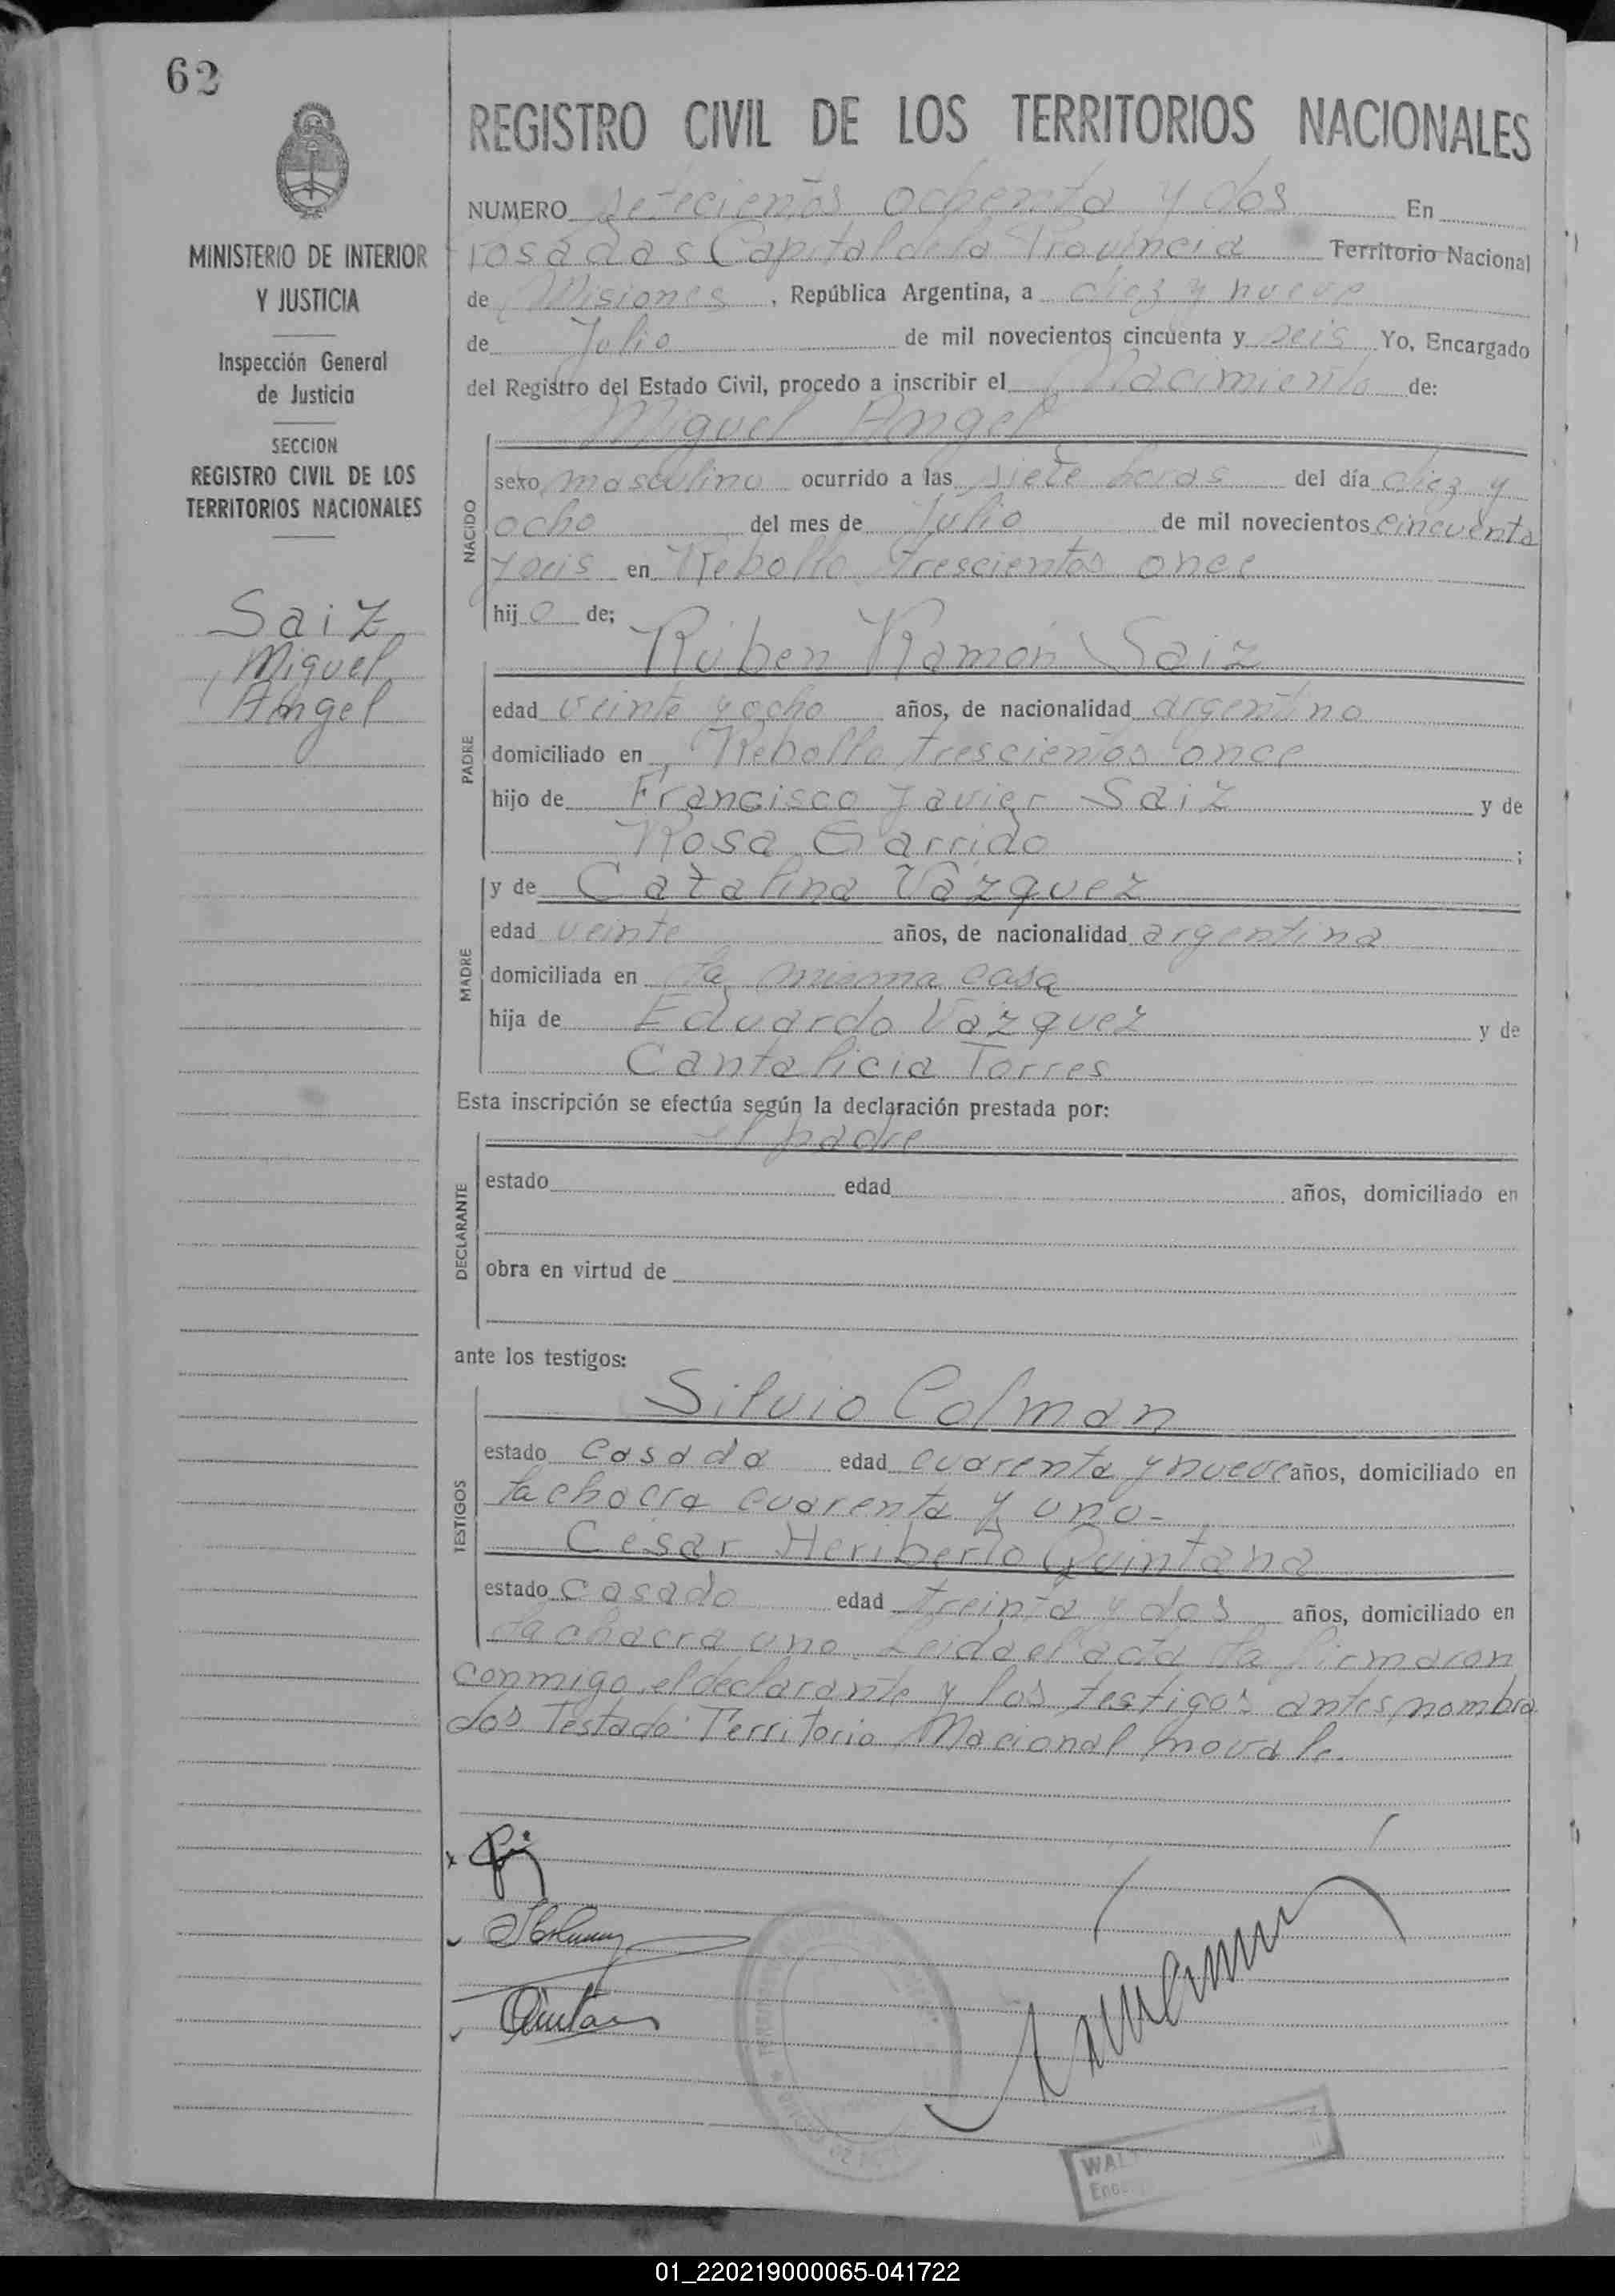 62
REGISTRO CIVIL DE LOS TERRITORIOS NACIONALES
MINISTERIO DE INTERIOR
Y JUSTICIA
Inspección General
de Justicia
SECCION
REGISTRO CIVIL DE LOS
TERRITORIOS NACIONALES
Saiz
Miguel
Angel
NUMERO setecientos ochenta y dos En
Posadas Capital de la Provincia Territorio Nacional
de Misiones, República Argentina, a diez y nueve
de Julio de mil novecientos cincuenta y seis Yo, Encargado
del Registro del Estado Civil, procedo a inscribir el Nacimiento de:
Miguel Angel
NACIDO
sexo masculino ocurrido a las siete horas del día diez y
ocho del mes de Julio de mil novecientos cincuenta
y seis en Rebollo trescientos once
hijo de;
Rúben Ramón Saiz
PADRE
edad veinte y ocho años, de nacionalidad argentino
domiciliado en Rebollo trescientos once
hijo de Francisco Javier Saiz y de
Rosa Garrido;
y de Catalina Vázquez
MADRE
edad veinte años, de nacionalidad argentina
domiciliada en la misma casa
hija de Eduardo Vázquez y de
Cantalicia Torres
Esta inscripción se efectúa según la declaración prestada por:
el padre
DECLARANTE
estado edad años, domiciliado en
obra en virtud de
ante los testigos:
Silvio Colman
TESTIGOS
estado casado edad cuarenta y nueve años, domiciliado en
la chacra cuarenta y uno-
César Heriberto Quintana
estado casado edad treinta y dos años, domiciliado en
la chacra uno. Leida el acta la firmaron
conmigo, el declarante y los testigos antes nombra
dos Testado: Territorio Nacional no vale.
Quintana
01_220219000065-041722